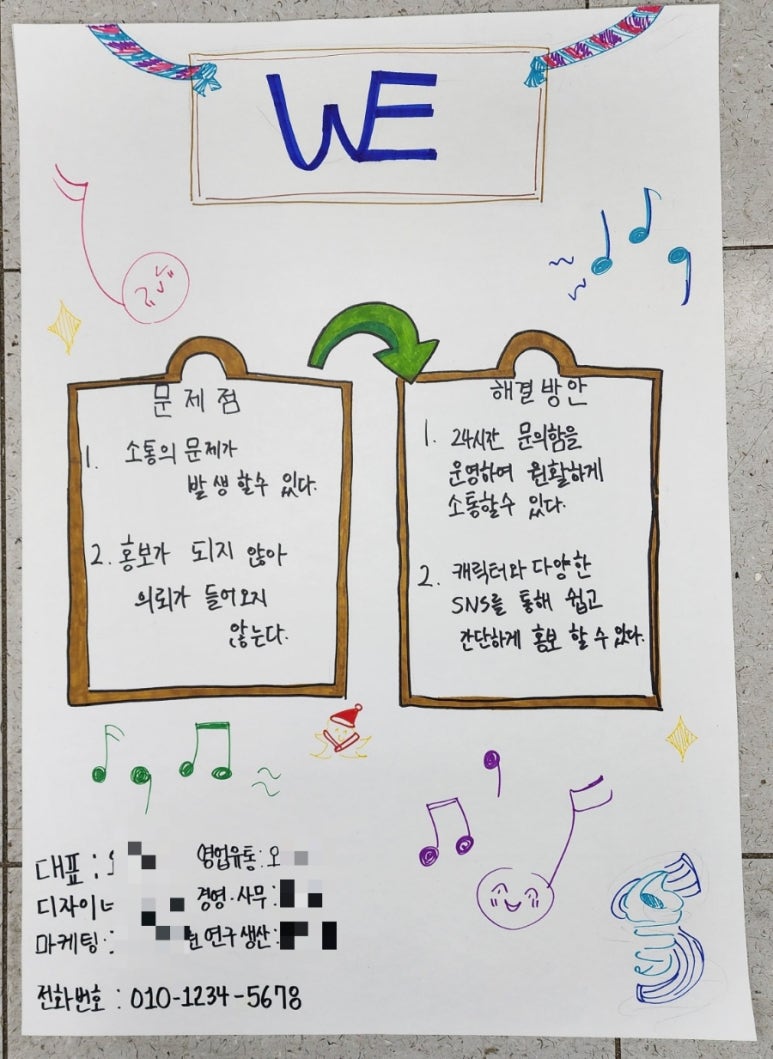 WE
문제점
1. 소통의 문제가
발생할수 있다.
2. 홍보가 되지 않아
의뢰가 들어오지
않는다.
해결방안
1. 24시간 문의함을
운영하여 원활하게
소통할수 있다.
2. 캐릭터와 다양한
SNS를 통해 쉽고
간단하게 홍보 할 수 있다.
대표 :
영업유통 : 오
디자이너
경영·사무 :
마케팅 :
연구생산 :
전화번호 : 010-1234-5678